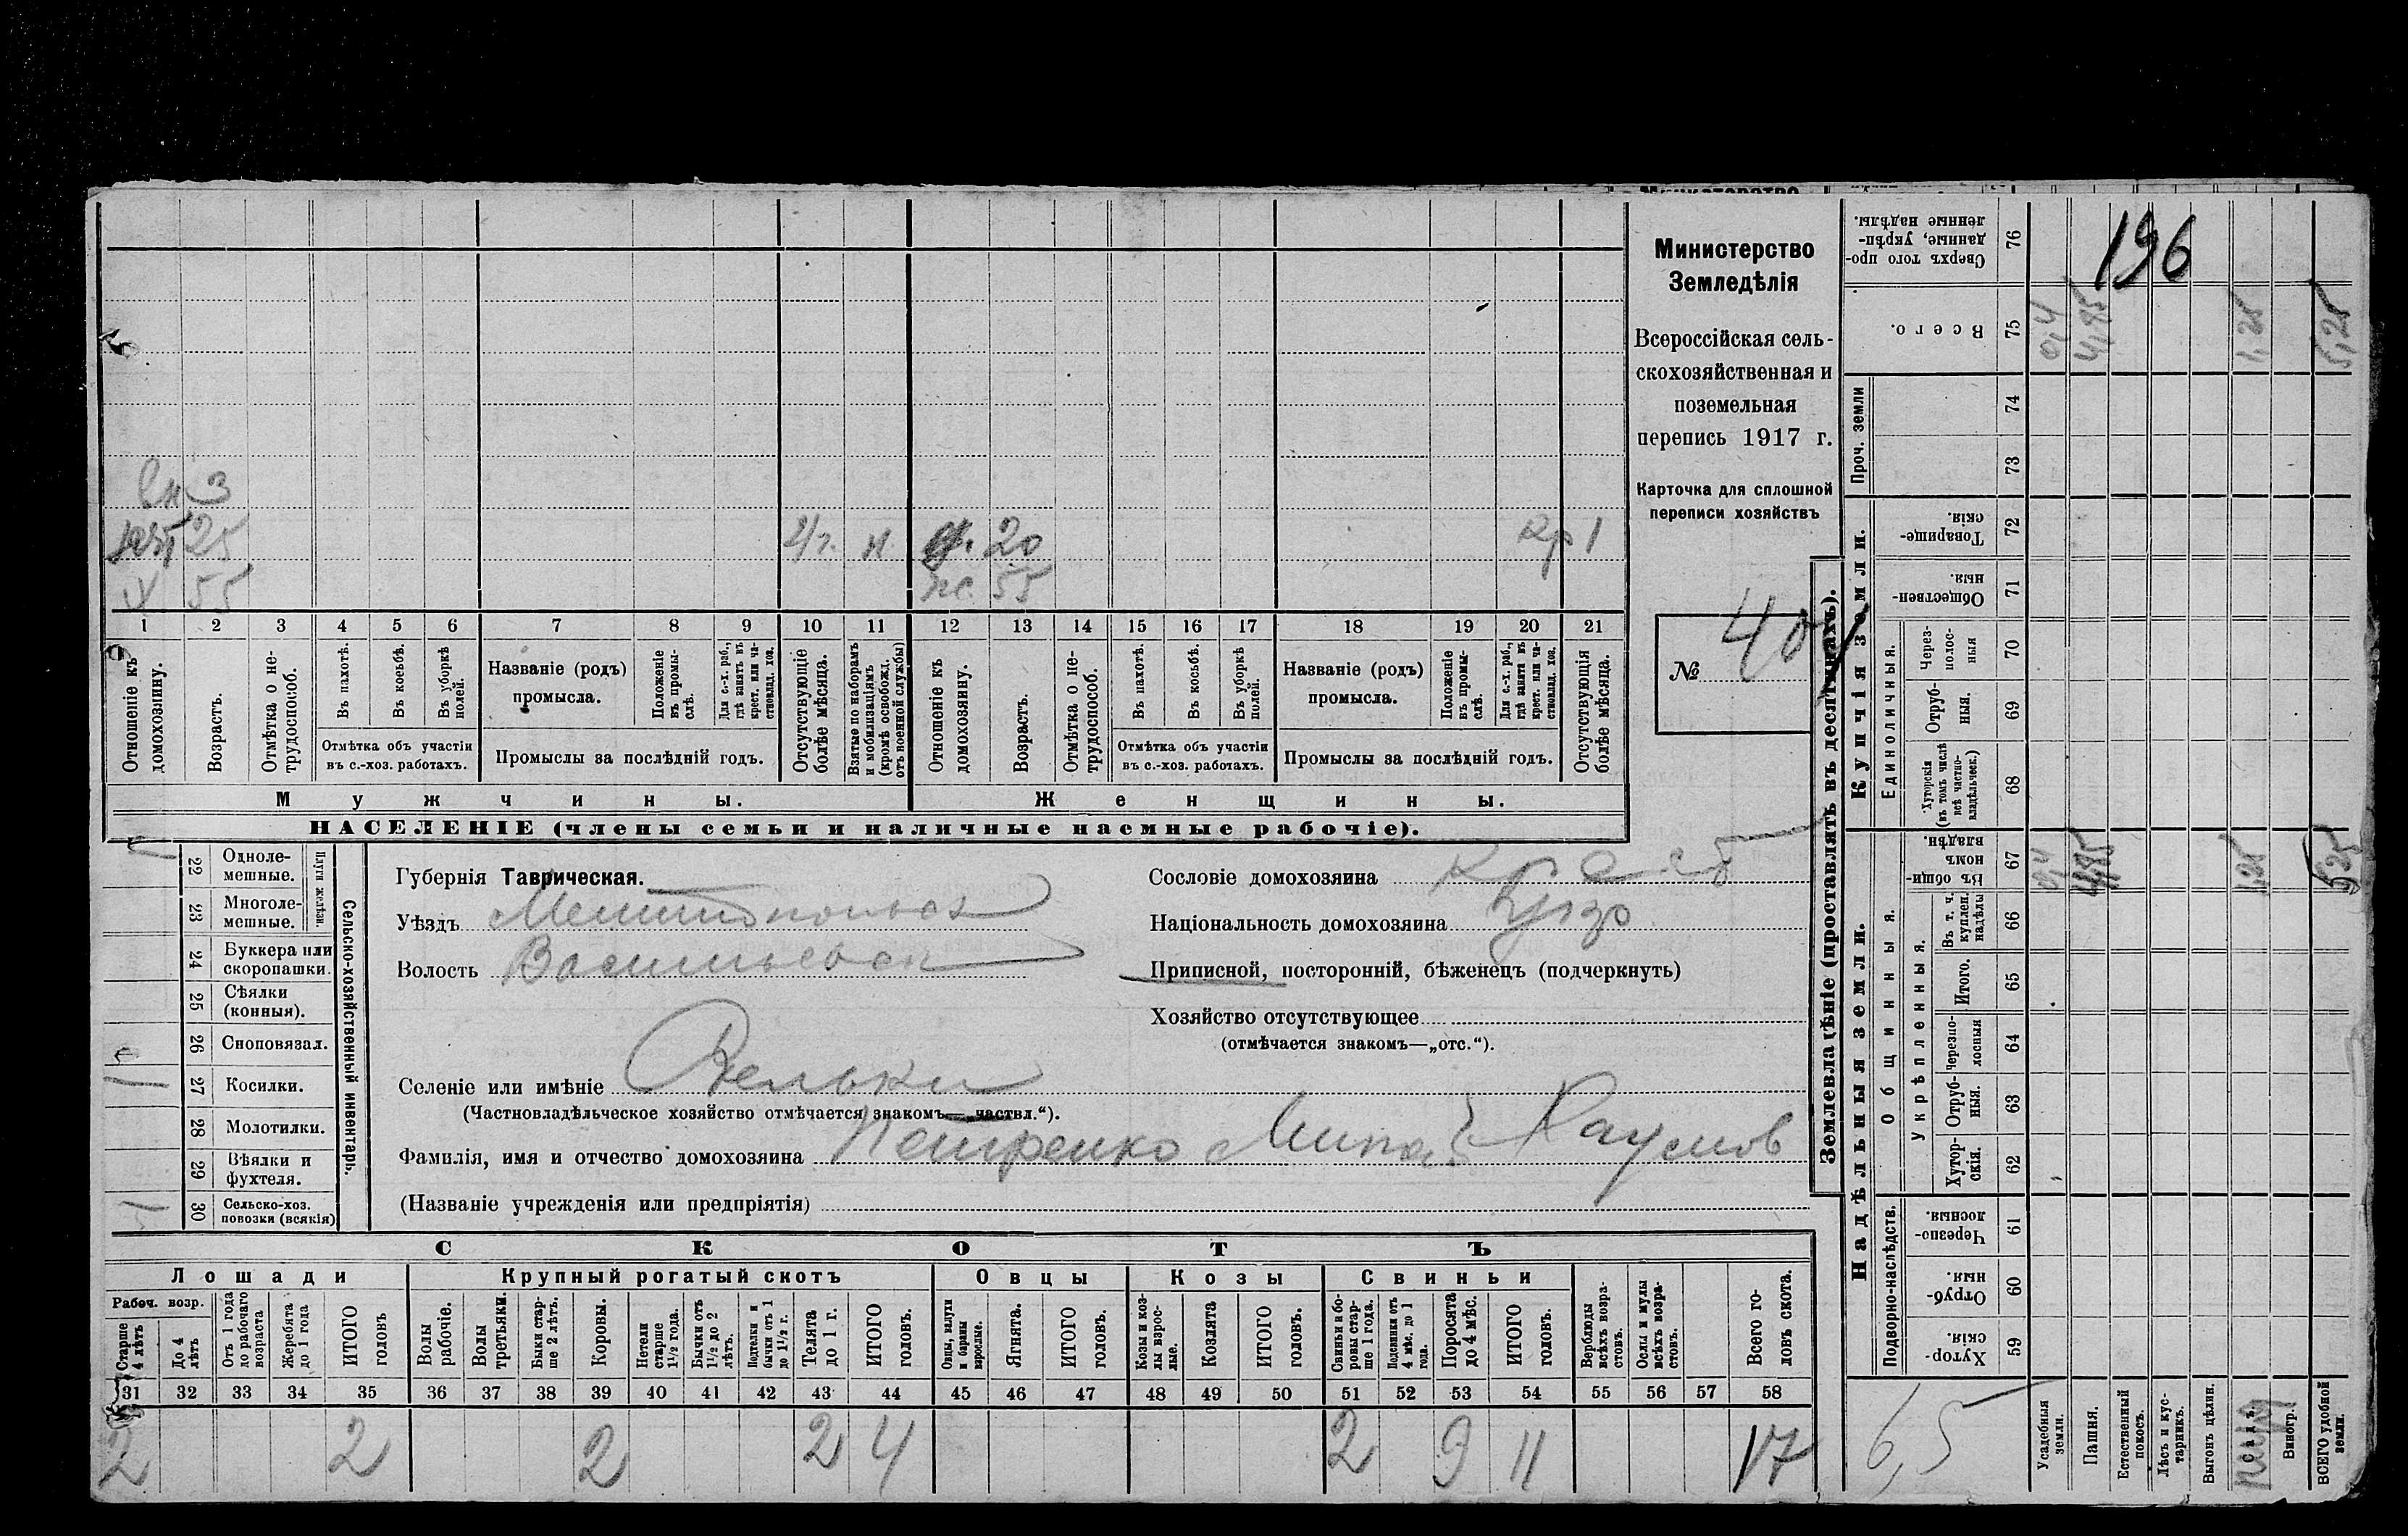 196
Министерство
Земледѣлія
Всероссійская сель-
скохозяйственная и
поземельная
перепись 1917 г.
Карточка для сплошной
переписи хозяйствъ
№ 40
вн 3
25 4 г. н 20 1
х 55 ж 55
1 2 3 4 5 6 7 8 9 10 11 12 13 14 15 16 17 18 19 20 21
Отношеніе къ домохозяину.
Возрастъ.
Отмѣтка о не-трудоспособ.
Въ пахотѣ.
Въ косьбѣ.
Въ уборкѣ полей.
Отмѣтка объ участіи
въ с.-хоз. работахъ.
Названіе (родъ)
промысла.
Положеніе въ промы-слѣ.
Для с.-х. раб., гдѣ занятъ въ крест. или ча-стновлад. хоз.
Промыслы за послѣдній годъ.
Отсутствующіе болѣе мѣсяца.
Взятые по наборамъ и мобилизаціямъ (кромѣ освобожд. отъ военной службы)
Отношеніе къ домохозяину.
Возрастъ.
Отмѣтка о не-трудоспособ.
Въ пахотѣ.
Въ косьбѣ.
Въ уборкѣ полей.
Отмѣтка объ участіи
въ с.-хоз. работахъ.
Названіе (родъ)
промысла.
Положеніе въ промы-слѣ.
Для с.-х. раб., гдѣ занята въ крест. или ча-стновлад. хоз.
Промыслы за послѣдній годъ.
Отсутствующія болѣе мѣсяца.
Мужчины.
Женщины.
НАСЕЛЕНІЕ (члены семьи и наличные наемные рабочіе).
Сельско-хозяйственный инвентарь.
Плуги желѣзн.
22 Одноле-мешные. 1
23 Многоле-мешные.
24 Буккера или скоропашки.
25 Сѣялки (конныя).
26 Сноповязал.
27 Косилки. 1
28 Молотилки.
29 Вѣялки и фухтеля.
30 Сельско-хоз. повозки (всякія) 1
Губернія Таврическая.
Уѣздъ Мелитопольск
Волость Васильевск
Сословіе домохозяина
Національность домохозяина
Приписной, посторонній, бѣженецъ (подчеркнуть)
Хозяйство отсутствующее
(отмѣчается знакомъ—„отс.“).
Селеніе или имѣніе
(Частновладѣльческое хозяйство отмѣчается знакомъ—„частвл.“).
Фамилія, имя и отчество домохозяина Петренко Минай Наумов
(Названіе учрежденія или предпріятія)
СКОТЪ
Лошади
Крупный рогатый скотъ
Овцы
Козы
Свиньи
Рабоч. возр.
Старше 4 лѣтъ
До 4 лѣтъ
Отъ 1 года до рабочаго возраста
Жеребята до 1 года
ИТОГО головъ
Волы рабочіе.
Волы третьяки.
Быки стар-ше 2 лѣтъ.
Коровы.
Нетели старше 1½ года.
Бычки отъ 1½ до 2 лѣтъ.
Подтелки и бычки отъ 1 до 1½ г.
Телята до 1 г.
ИТОГО головъ.
Овцы, валухи и бараны взрослые.
Ягнята.
ИТОГО головъ.
Козы и коз-лы взрос-лые.
Козлята
ИТОГО головъ.
Свиньи и бо-ровы стар-ше 1 года.
Подсвинки отъ 4 мѣс. до 1 года.
Поросята до 4 мѣс.
ИТОГО головъ.
Верблюды всѣхъ возра-стовъ.
Ослы и мулы всѣхъ возра-стовъ.
Всего го-ловъ скота.
31 32 33 34 35 36 37 38 39 40 41 42 43 44 45 46 47 48 49 50 51 52 53 54 55 56 57 58
2 2 2 2 4 2 9 11 17
Землевладѣніе (проставлять въ десятинахъ).
Купчія земли.
Надѣльныя земли.
Проч. земли
Единоличныя.
Общинныя.
Укрѣпленныя.
Подворно-наслѣдств.
76 Сверхъ того про-данные, укрѣп-ленные надѣлы.
75 Всего. 0,4 4,85 1,25 5,25
74
73
72 Товарище-скія.
71 Обществен-ныя.
70 Через-полос-ныя
69 Отруб-ныя.
68 Хуторскія (въ томъ числѣ всѣ частно-владѣльческ.)
67 Въ общин-номъ владѣн. 0,4 4,85 1,25 5,25
66 Въ т. ч. куплен. надѣлы
65 Итого.
64 Черезпо-лосныя
63 Отруб-ныя.
62 Хутор-скія.
61 Черезпо-лосныя.
60 Отруб-ныя.
59 Хутор-скія.
6,5
Усадебныя земли.
Пашня.
Естественный покосъ.
Лѣсъ и кус-тарникъ.
Выгонъ цѣлин.
Виногр.
ВСЕГО удобной земли.